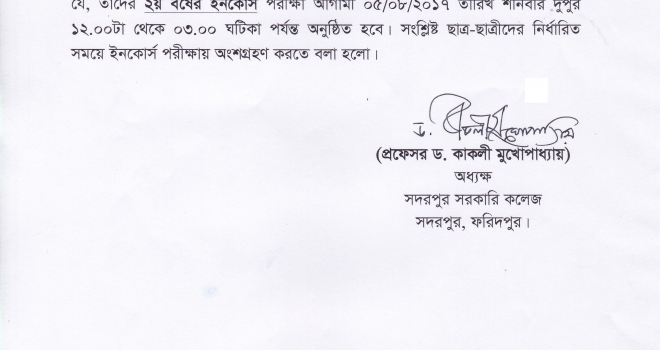 যে, তাদের ২য় বর্ষের ইনকোর্স পরীক্ষা আগামী ০৫/০৮/২০১৭ তারিখ শনিবার দুপুর
১২.০০টা থেকে ০৩.০০ ঘটিকা পর্যন্ত অনুষ্ঠিত হবে। সংশ্লিষ্ট ছাত্র-ছাত্রীদের নির্ধারিত
সময়ে ইনকোর্স পরীক্ষায় অংশগ্রহণ করতে বলা হলো।
ড.
(প্রফেসর ড. কাকলী মুখোপাধ্যায়)
অধ্যক্ষ
সদরপুর সরকারি কলেজ
সদরপুর, ফরিদপুর।